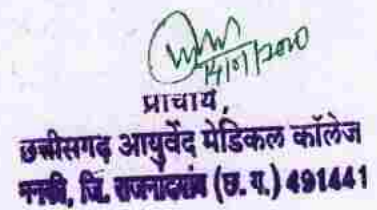 प्राचार्य,
छत्तीसगढ़ आयुर्वेद मेडिकल कॉलेज
मनकी, जि. राजनांदगांव (छ. ग.) 491441